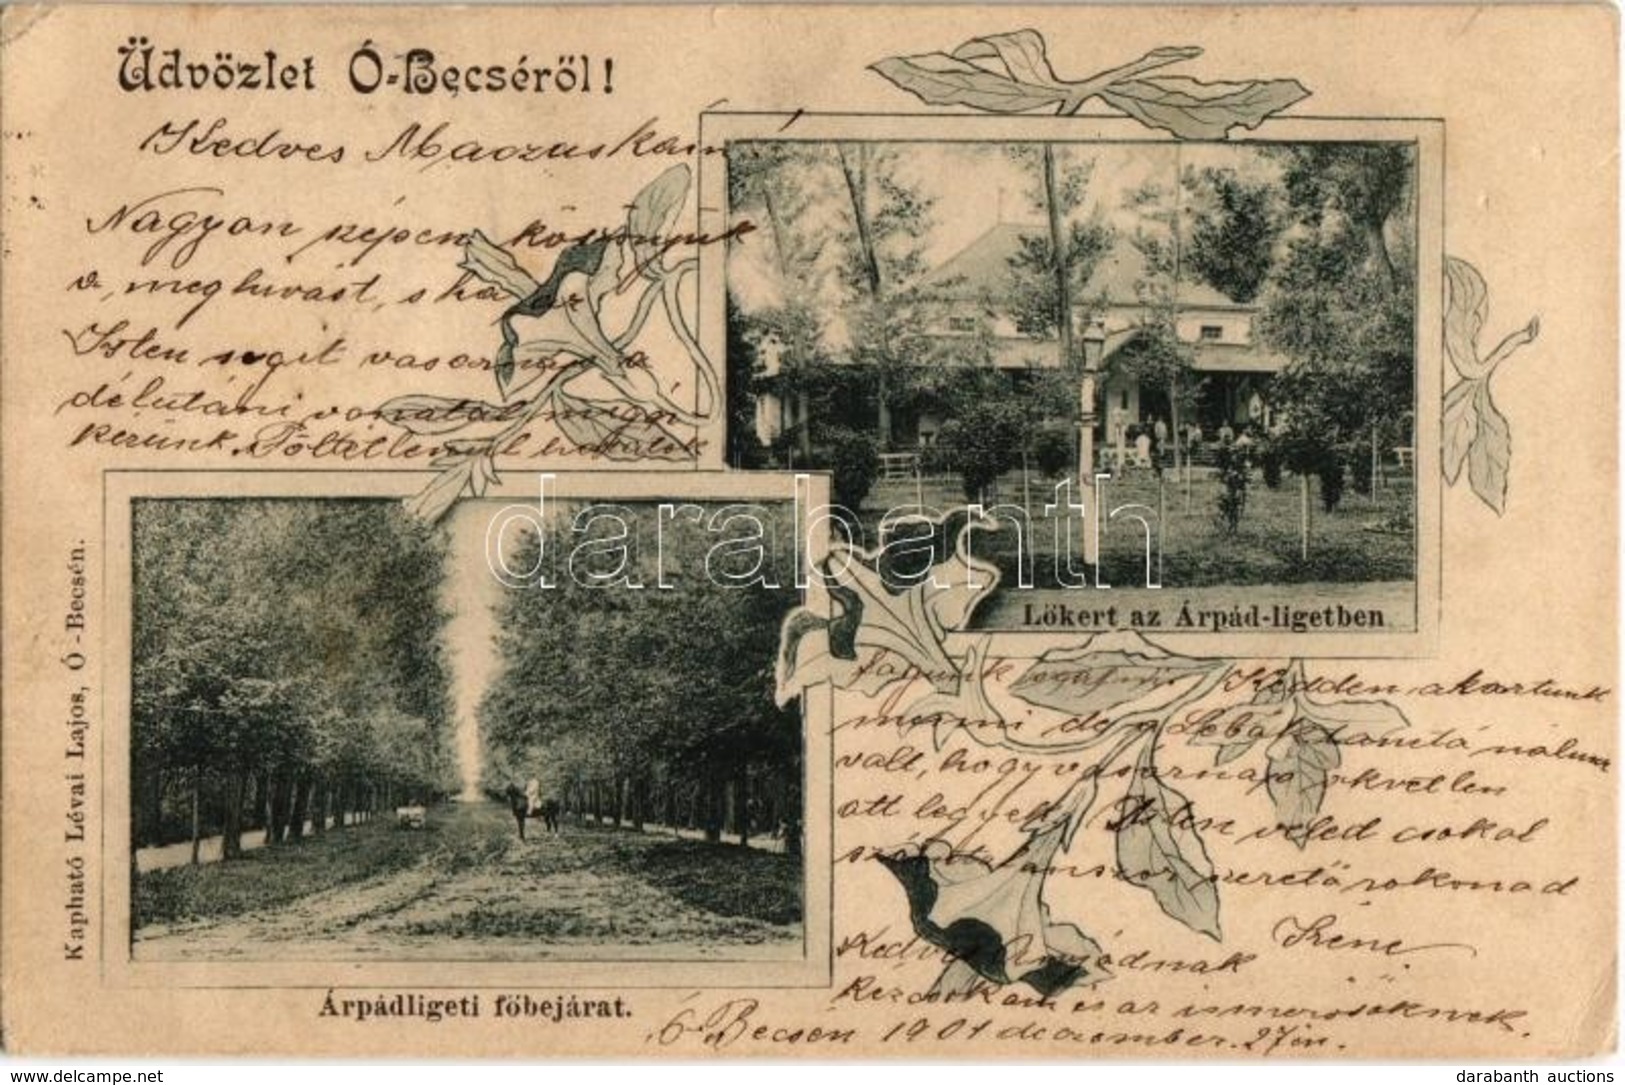 Üdvözlet Ó-Becséről!
Kedves Maczuskám!
Nagyon szépen köszönjük
a meghivást, s ha az
Isten segit vasarnap a
délutáni vonatal
kerünk.
Lőkert az Árpád-ligetben
darabanth
Kapható Lévai Lajos, Ó-Becsén.
Árpádligeti főbejárat.
fogunk Kedden akartunk
menni de a tanitó nálunk
valt, hogy vasarnap okvetlen
ott legyek Isten veled csokol
szerető rokonad
Irene
Kedves Anyádnak
kezcsokam és az ismerősöknek.
Ó Becsén 1901 deczember 27én.
www.delcampe.net
darabanth auctions